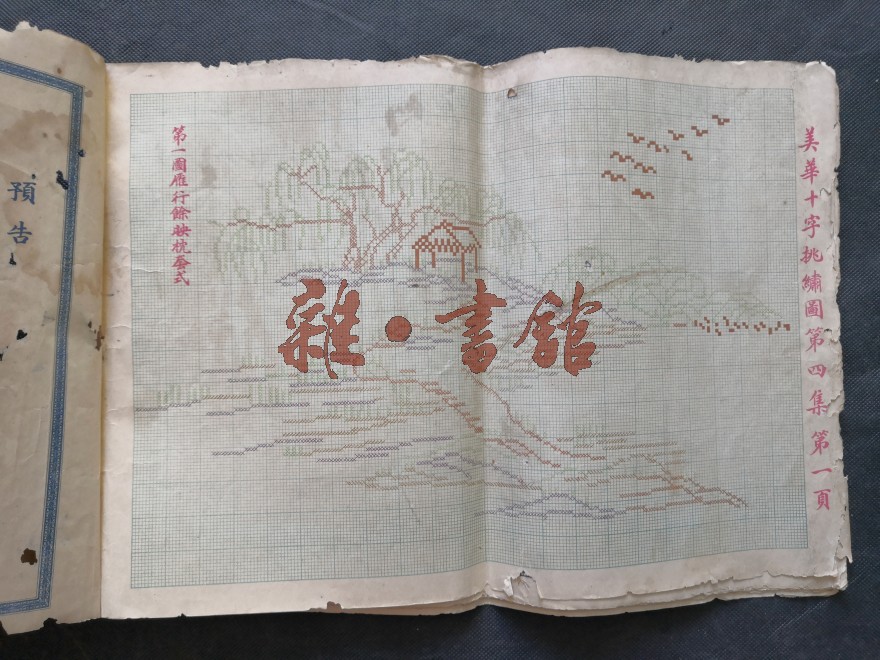 美華十字挑繡圖第四集 第一頁
第一圖雁行餘映枕套式
雜·書館
預告